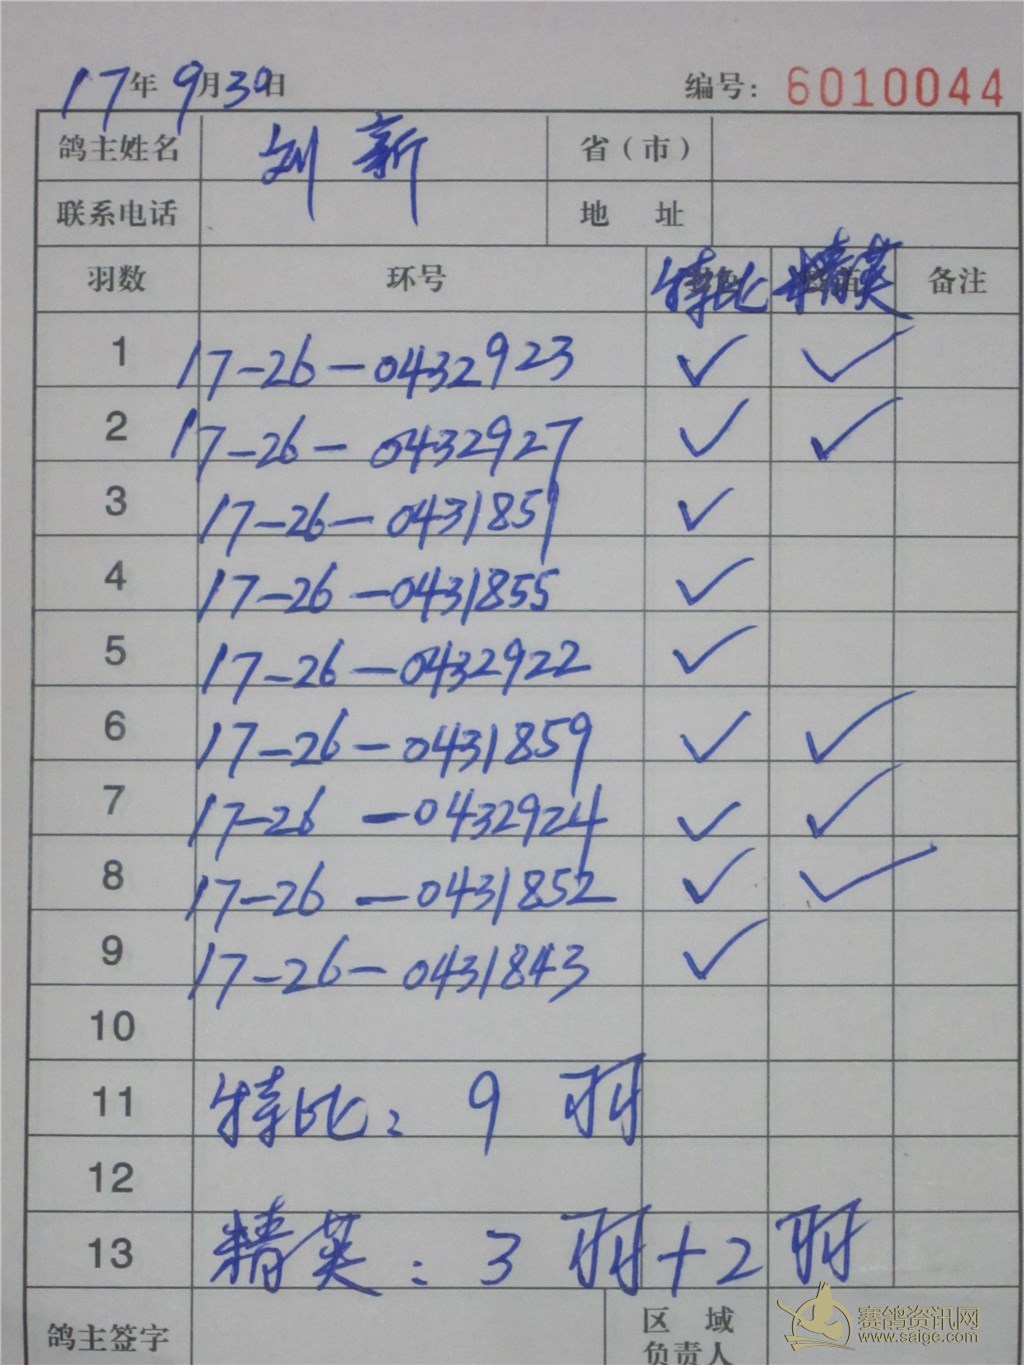 17年9月30日 编号: 6010044
鸽主姓名 刘新 省（市）
联系电话 地 址
羽数 环号 特比 精英 备注
1 17-26-0432923 ✓ ✓
2 17-26-0432927 ✓ ✓
3 17-26-0431851 ✓
4 17-26-0431855 ✓
5 17-26-0432922 ✓
6 17-26-0431859 ✓ ✓
7 17-26-0432924 ✓ ✓
8 17-26-0431852 ✓ ✓
9 17-26-0431843 ✓
10
11 特比: 9 羽
12
13 精英: 3 羽+2 羽
鸽主签字 区 域
负责人
赛鸽资讯网
www.saige.com